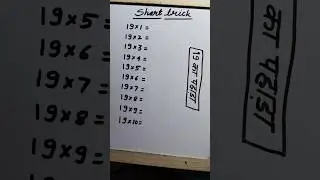 Short brick
19×1=
19×2=
19×3=
19×4=
19×5=
19×6=
19×7=
19×8=
19×9=
19×10=
19 का पहाड़ा
19×5=
19×6=
19×7=
19×8=
19×9=